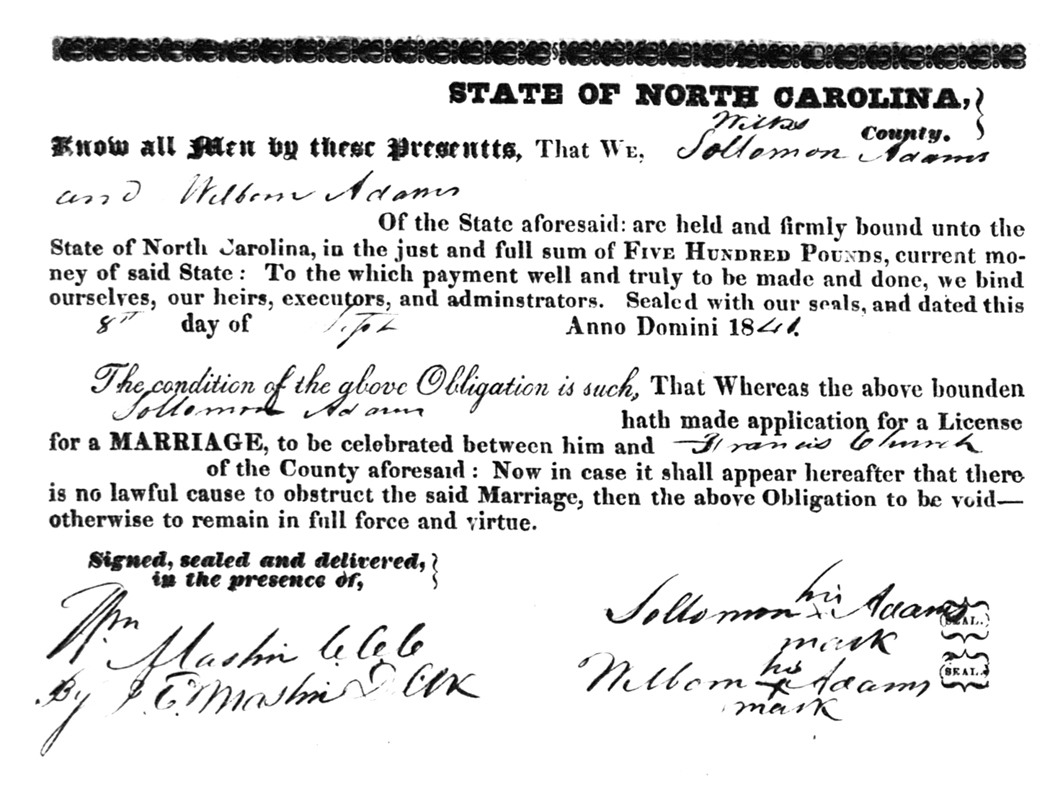 STATE OF NORTH CAROLINA,
Wilkes County.
Know all Men by these Presentts, That WE, Sollomon Adams
and Welborn Adams
Of the State aforesaid: are held and firmly bound unto the
State of North Carolina, in the just and full sum of FIVE HUNDRED POUNDS, current mo-
ney of said State: To the which payment well and truly to be made and done, we bind
ourselves, our heirs, executors, and adminstrators. Sealed with our seals, and dated this
8th day of Sept Anno Domini 1841.
The condition of the above Obligation is such, That Whereas the above bounden
Sollomon Adams hath made application for a License
for a MARRIAGE, to be celebrated between him and Francis Church
of the County aforesaid: Now in case it shall appear hereafter that there
is no lawful cause to obstruct the said Marriage, then the above Obligation to be void—
otherwise to remain in full force and virtue.
Signed, sealed and delivered,
in the presence of,
Wm Mastin C C C
By J. E. Mastin D Clk
Sollomon his x Adams SEAL.
mark
Welborn his x Adams SEAL.
mark